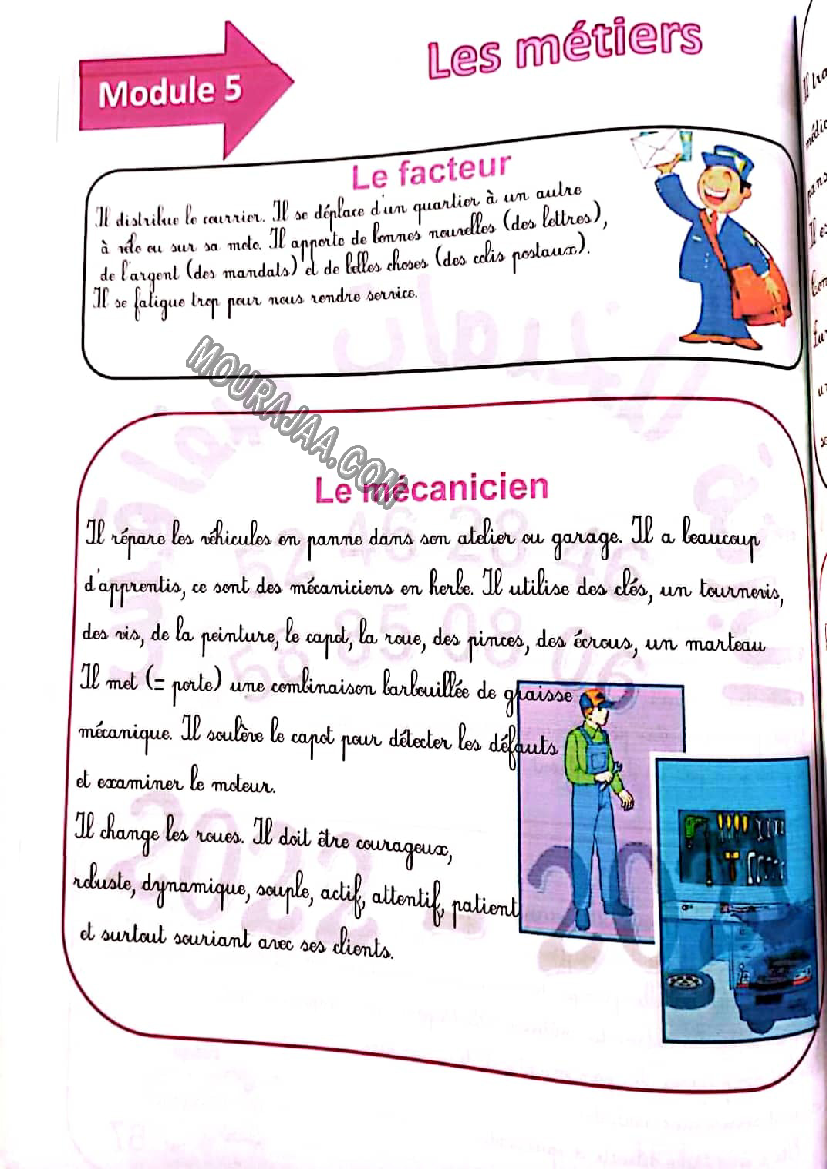 Module 5
Les métiers
Le facteur
Il distribue le courrier. Il se déplace d'un quartier à un autre
à vélo ou sur sa moto. Il apporte de bonnes nouvelles (des lettres),
de l'argent (des mandats) et de belles choses (des colis postaux).
Il se fatigue trop pour nous rendre service.
MOURAJAA.COM
Le mécanicien
Il répare les véhicules en panne dans son atelier ou garage. Il a beaucoup
d'apprentis, ce sont des mécaniciens en herbe. Il utilise des clés, un tournevis,
des vis, de la peinture, le capot, la roue, des pinces, des écrous, un marteau
Il met (= porte) une combinaison barbouillée de graisse
mécanique. Il soulève le capot pour détecter les défauts
et examiner le moteur.
Il change les roues. Il doit être courageux,
robuste, dynamique, souple, actif, attentif, patient
et surtout souriant avec ses clients.
52 46 28 46
58 85 08 06
2022